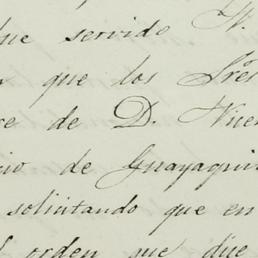 que servido
que los Sres
de D.
de Guayaquil
solicitando que en
orden que